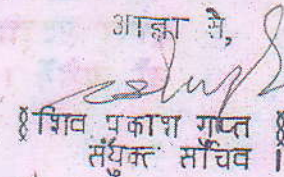 आज्ञा से,
§ शिव प्रकाश गुप्त §
संयुक्त सचिव ।